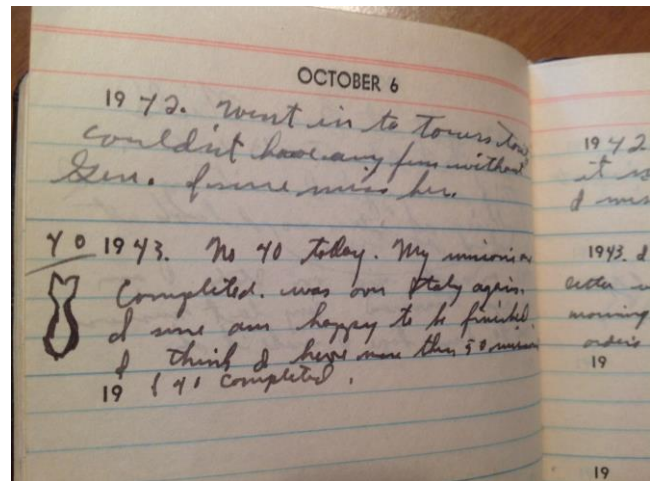 OCTOBER 6
1942. Went in to Towers tow
couldn't have any fun without
Gen. I sure miss her.
40 1943. No 40 today. My missions are
Completed. was over Italy again.
I sure am happy to be finished
I think I have more than 50 missions
19 & 40 completed.
1942
it
I miss
1943. I
letter
morning
orders
19
19